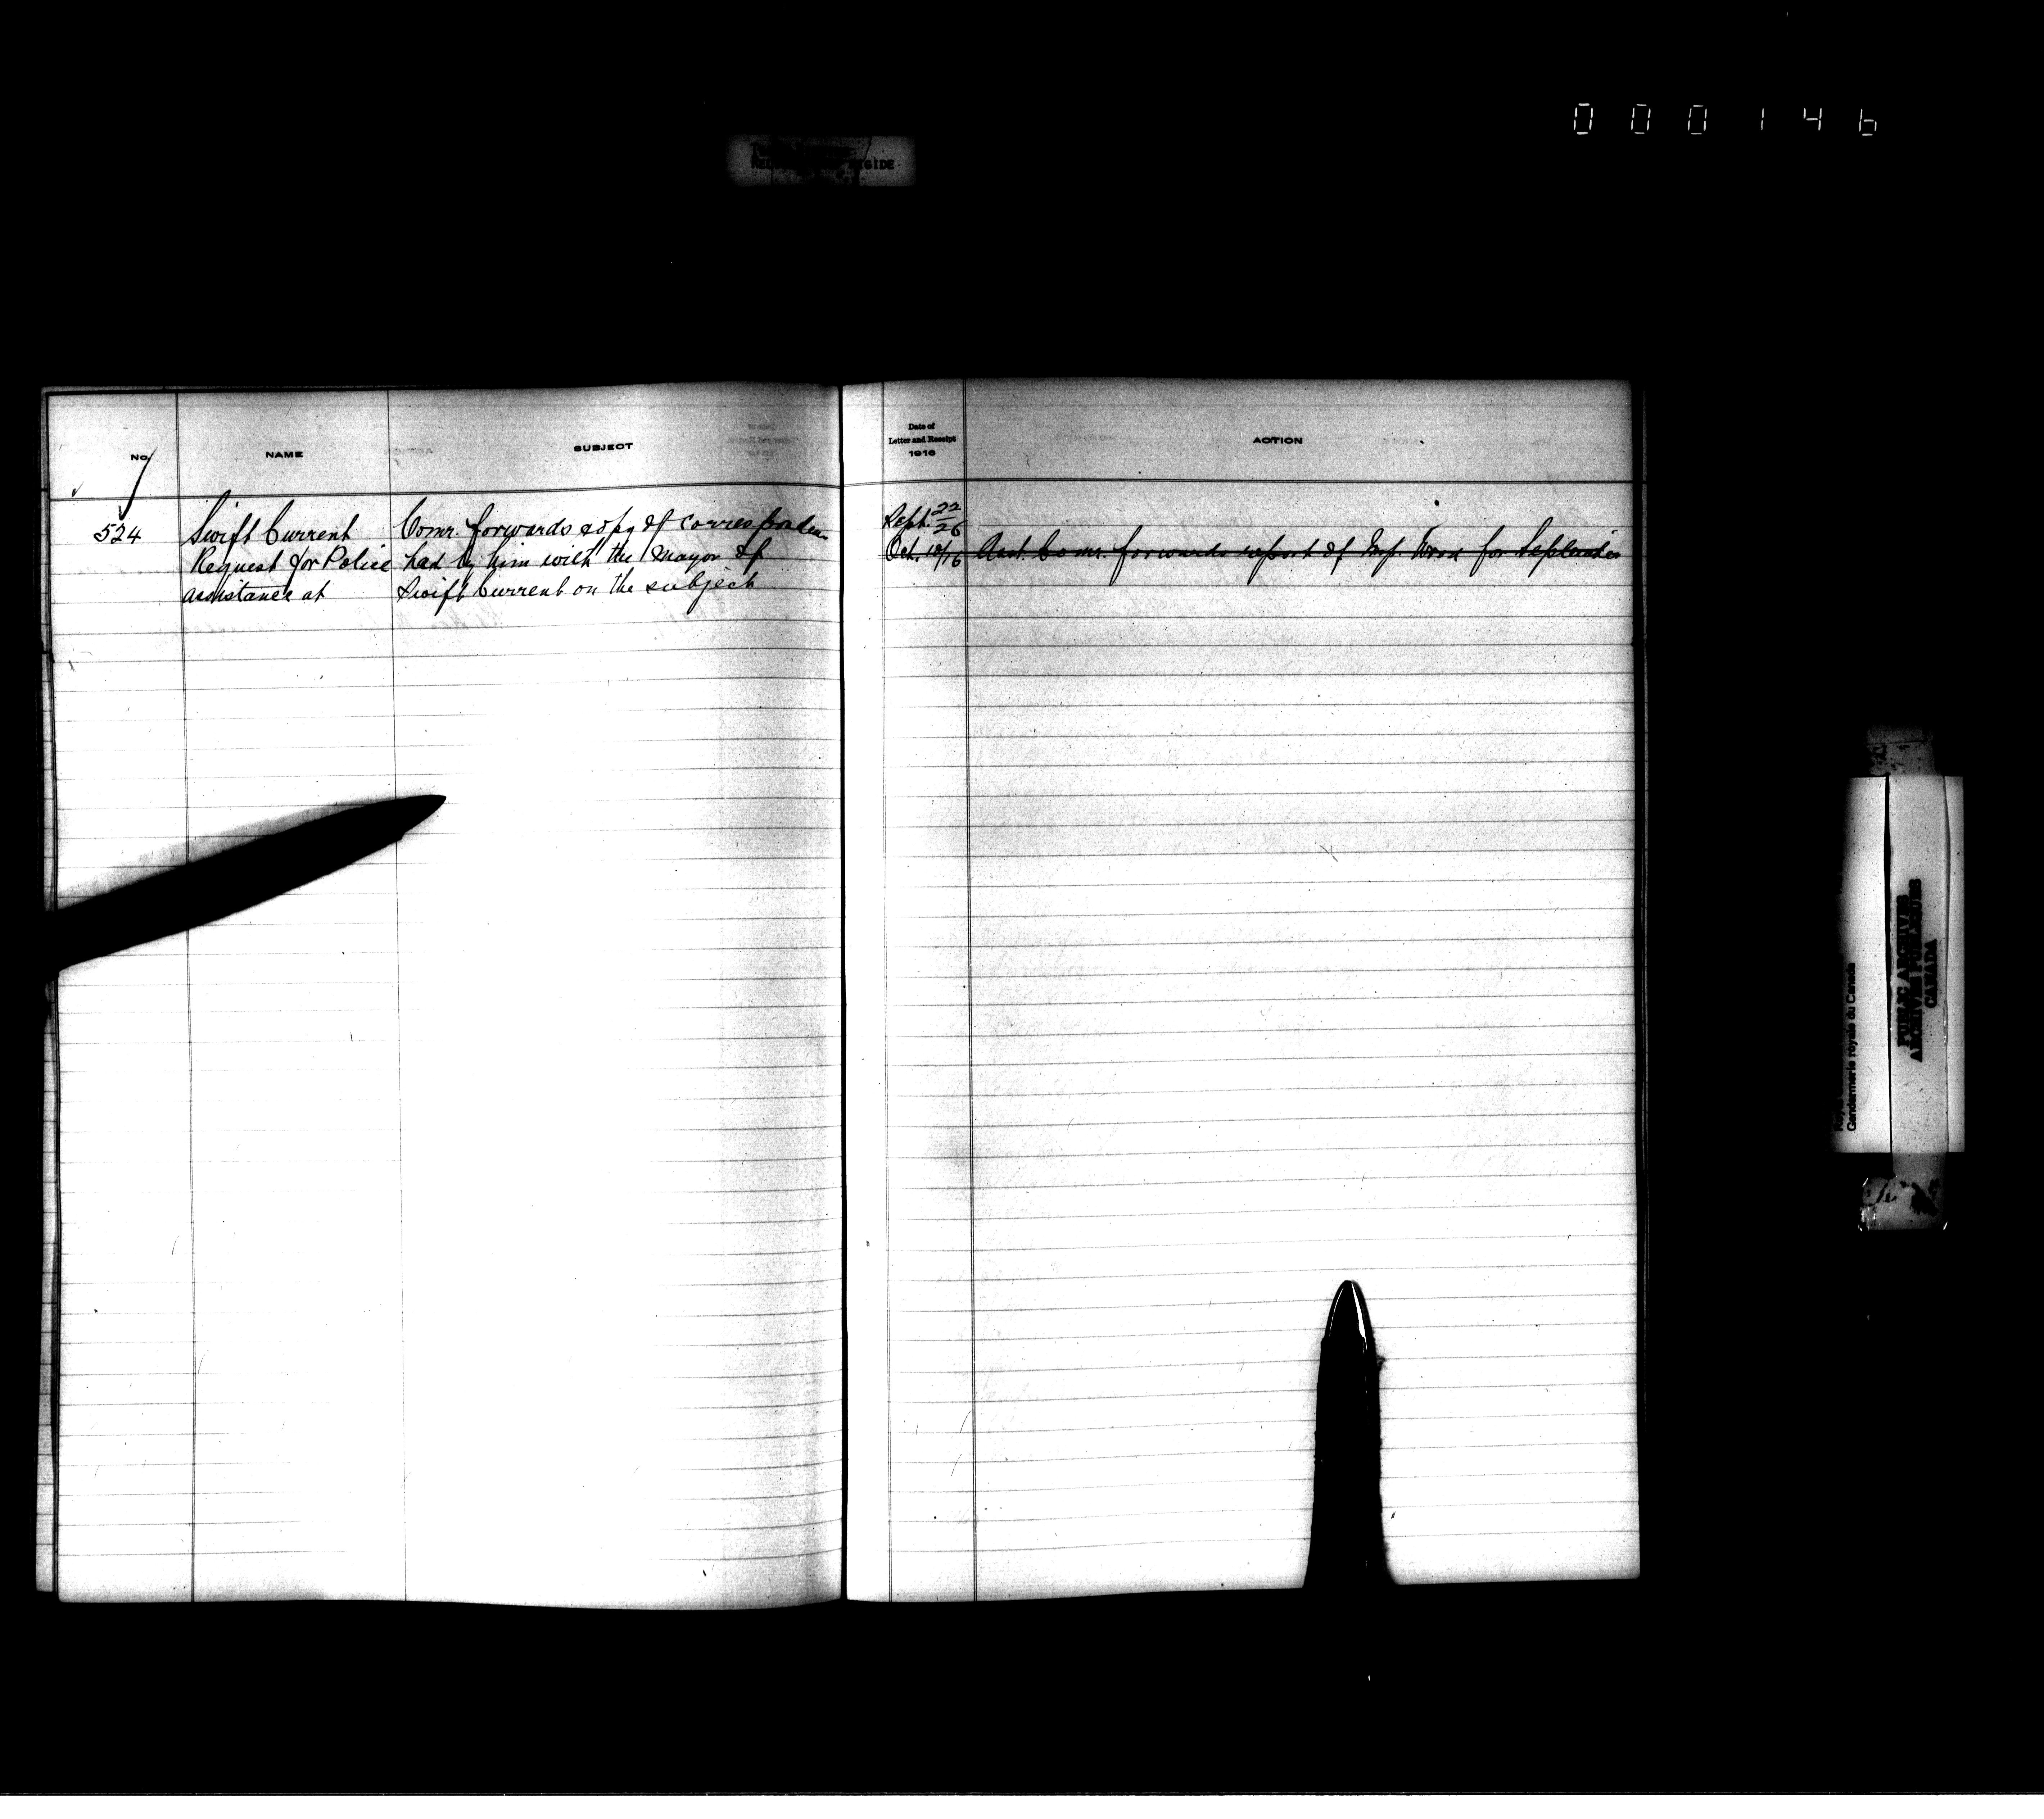 000146
No. NAME SUBJECT Date of Letter and Receipt 1916 ACTION
524 Swift Current Comr. forwards copy of corresponden Sept. 22/26
Request for Police had by him with the Mayor of Oct. 10/16 Asst. Comr. forwards report of Insp. for September
assistance at Swift Current on the subject
Gendarmerie royale du Canada
PUBLIC ARCHIVES
ARCHIVES PUBLIQUES
CANADA